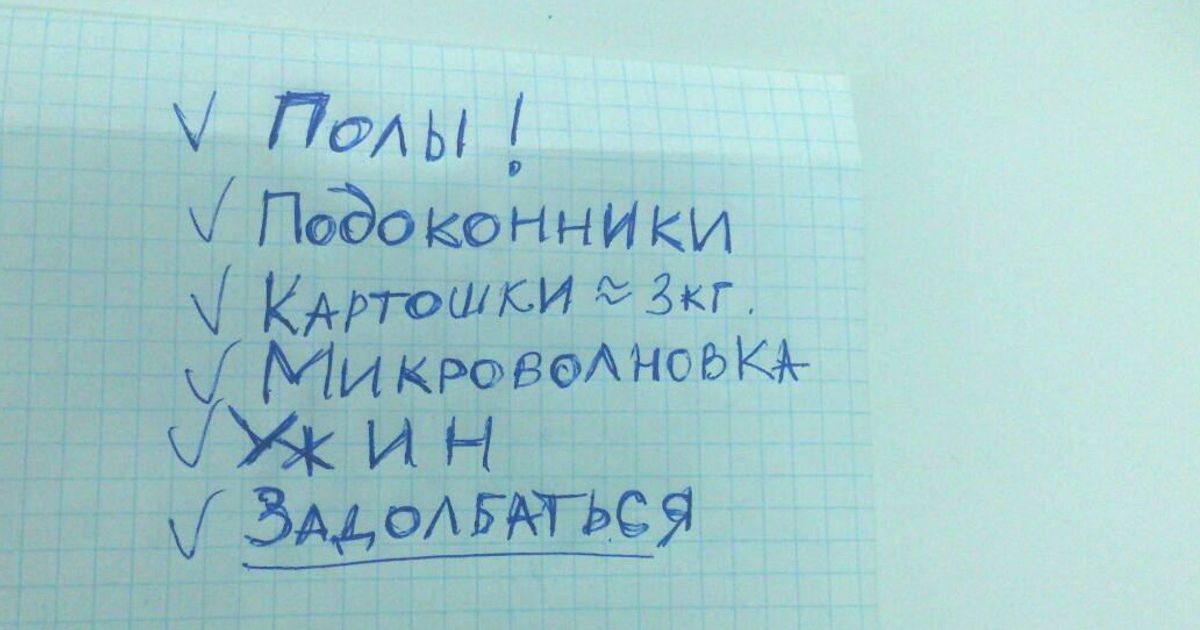 ✓ Полы!
✓ Подоконники
✓ Картошки ≈ 3 кг.
✓ Микроволновка
✓ Ужин
✓ Задолбаться